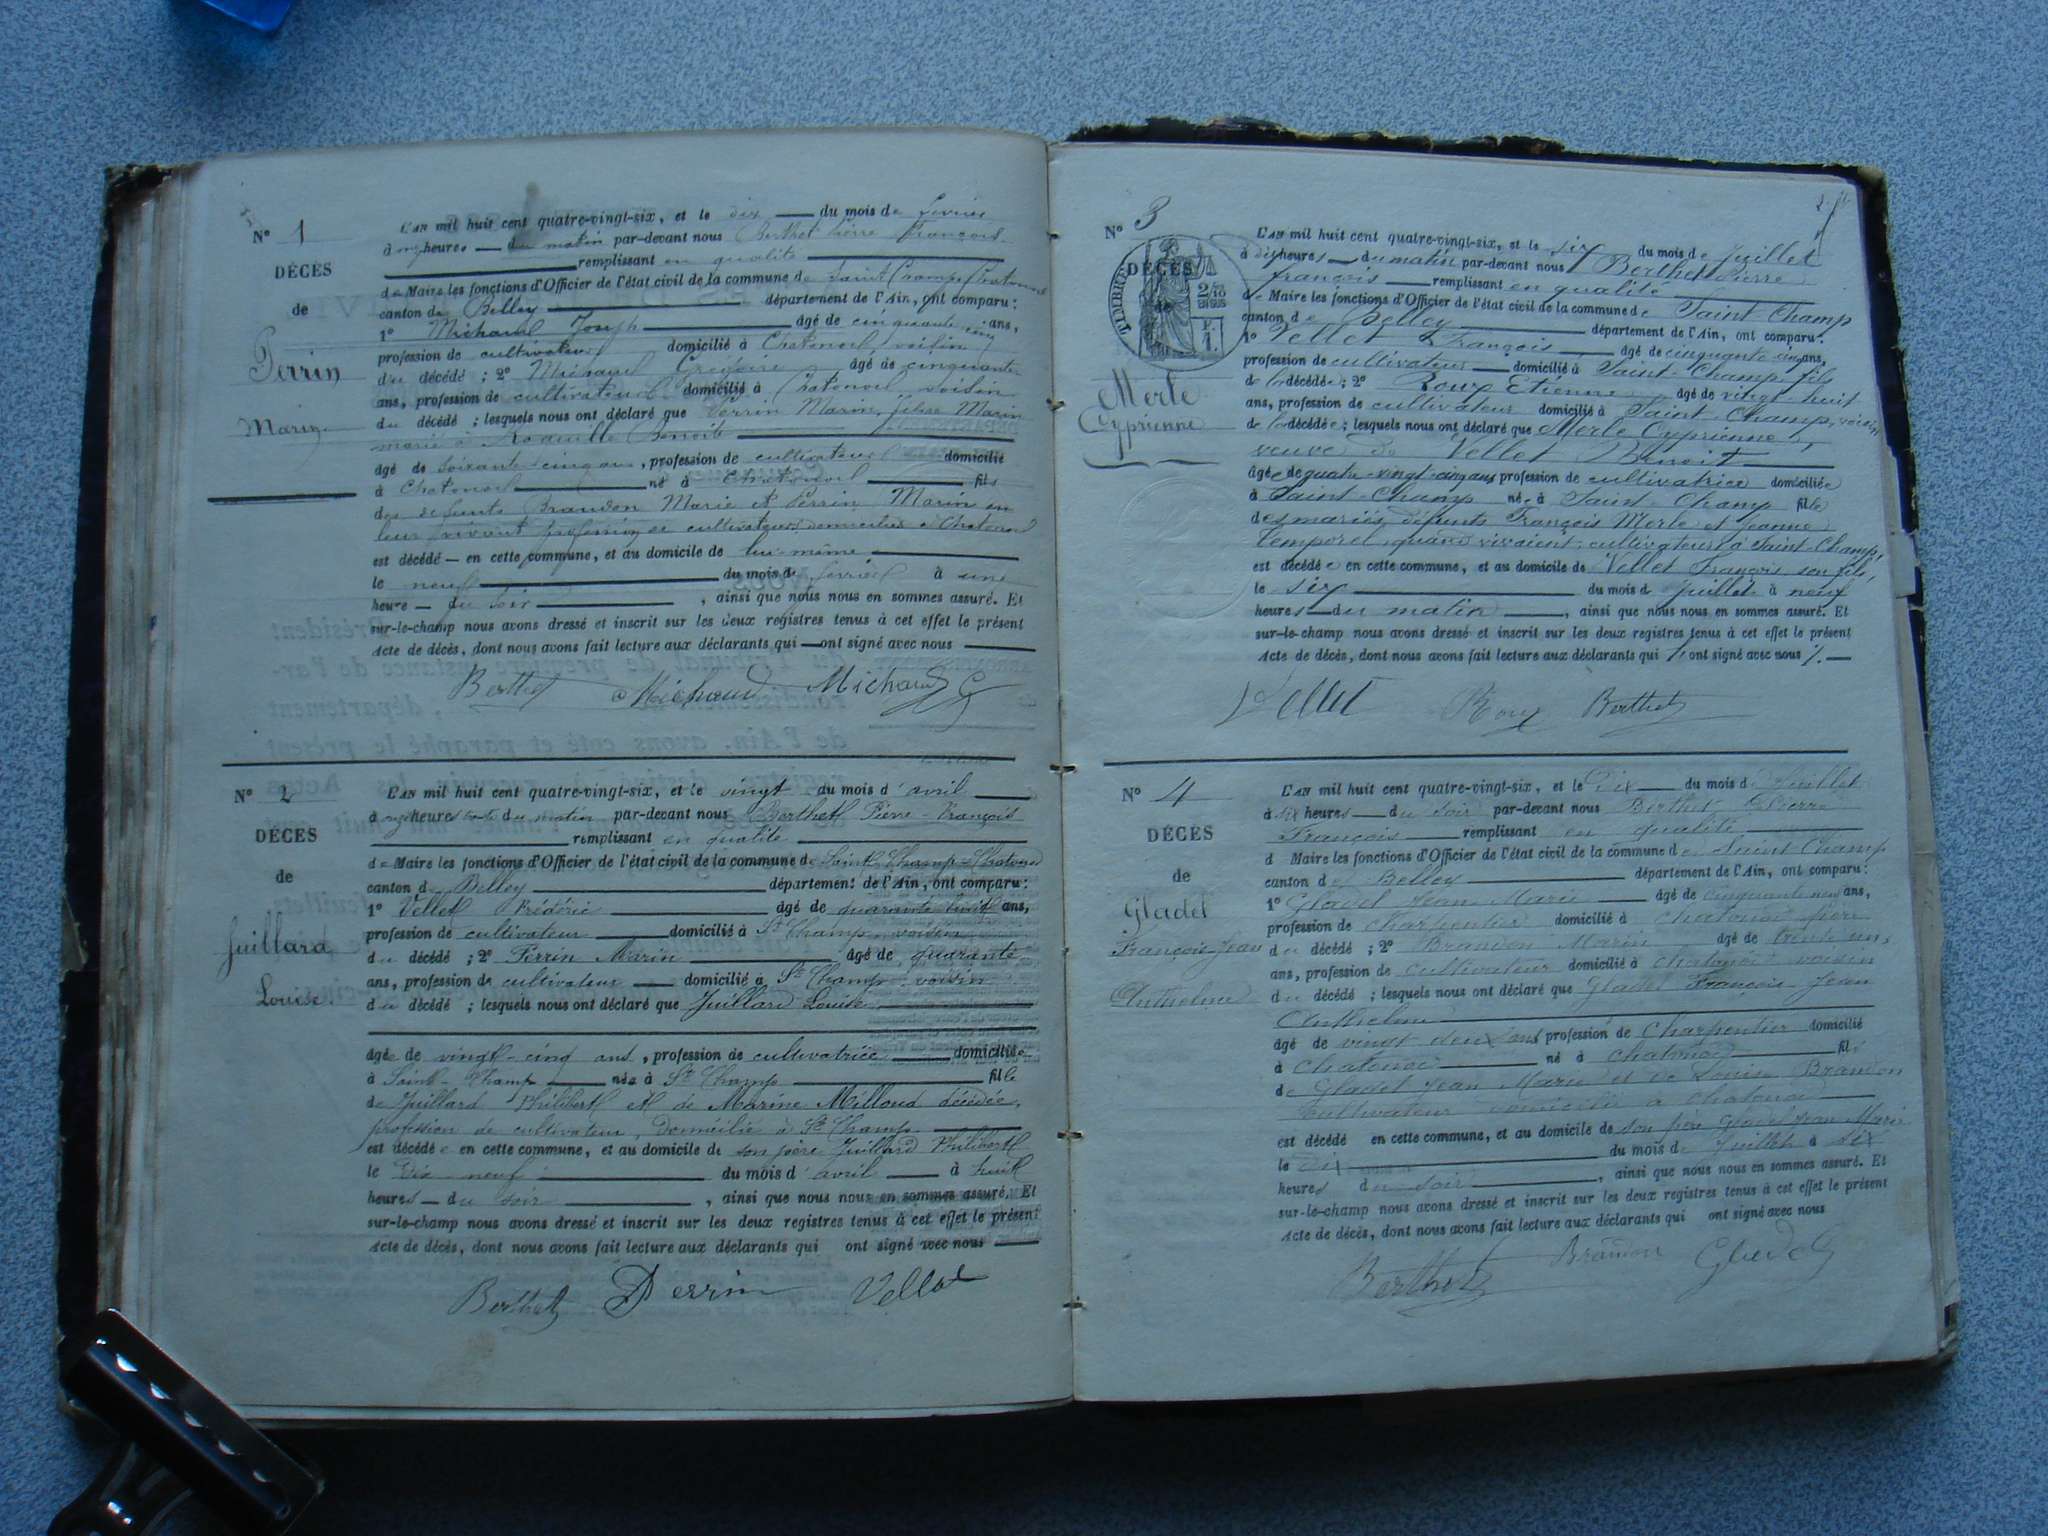 N° 1
DÉCÈS
de
Perrin
Marin
L'AN mil huit cent quatre-vingt-six, et le dix du mois de février
à onze heures du matin par-devant nous Berthet Pierre François
remplissant en qualité
de Maire les fonctions d'Officier de l'état civil de la commune de Saint Champ Chatonod
canton de Belley département de l'Ain, ont comparu:
1° Michaud Joseph âgé de cinquante cinq ans,
profession de cultivateur domicilié à Chatonod voisin
du décédé; 2° Michaud Grégoire âgé de cinquante
ans, profession de cultivateur domicilié à Chatonod voisin
du décédé; lesquels nous ont déclaré que Perrin Marin, Marin
marié à Benoite
âgé de soixante cinq ans, profession de cultivateur domicilié
à Chatonod né à Chatonod fils
des défunts Brandon Marie et Perrin Marin en
leur vivant profession de cultivateurs domiciliés à Chatonod
est décédé en cette commune, et au domicile de lui-même
le neuf du mois de février à une
heure du soir, ainsi que nous nous en sommes assuré. Et
sur-le-champ nous avons dressé et inscrit sur les deux registres tenus à cet effet le présent
Acte de décès, dont nous avons fait lecture aux déclarants qui ont signé avec nous
Berthet Michaud Michaud G
N° 2
DÉCÈS
de
Juillard
Louise
L'AN mil huit cent quatre-vingt-six, et le vingt du mois d'avril
à onze heures du matin par-devant nous Berthet Pierre-François
remplissant en qualité
de Maire les fonctions d'Officier de l'état civil de la commune de Saint Champ-Chatonod
canton de Belley département de l'Ain, ont comparu:
1° Vellet Frédéric âgé de quarante huit ans,
profession de cultivateur domicilié à St Champ voisin
du décédé; 2° Perrin Marin âgé de quarante
ans, profession de cultivateur domicilié à St Champ voisin
du décédé; lesquels nous ont déclaré que Juillard Louise
âgée de vingt-cinq ans, profession de cultivatrice domiciliée
à Saint-Champ née à St Champ fille
de Juillard Philibert et de Marine Milloud décédée,
profession de cultivateur, domicilié à St Champ
est décédée en cette commune, et au domicile de son père Juillard Philibert
le dix neuf du mois d'avril à huit
heures du soir, ainsi que nous nous en sommes assuré. Et
sur-le-champ nous avons dressé et inscrit sur les deux registres tenus à cet effet le présent
Acte de décès, dont nous avons fait lecture aux déclarants qui ont signé avec nous
Berthet Perrin Vellet
N° 3
DÉCÈS
TIMBRE
Merle
Cyprienne
L'AN mil huit cent quatre-vingt-six, et le six du mois de Juillet
à dix heures du matin par-devant nous Berthet Pierre
françois remplissant en qualité
de Maire les fonctions d'Officier de l'état civil de la commune de Saint Champ
canton de Belley département de l'Ain, ont comparu:
1° Vellet François âgé de cinquante cinq ans,
profession de cultivateur domicilié à Saint-Champ fils
de la décédée; 2° Roux Etienne âgé de vingt-huit
ans, profession de cultivateur domicilié à Saint-Champ, voisin
de la décédée; lesquels nous ont déclaré que Merle Cyprienne,
veuve de Vellet Benoit
âgée de quatre-vingt-cinq ans profession de cultivatrice domiciliée
à Saint-Champ née à Saint-Champ fille
des mariés, défunts François Merle et Jeanne
Temporel, quand vivaient, cultivateurs à Saint-Champ,
est décédée en cette commune, et au domicile de Vellet François son fils,
le six du mois de Juillet à neuf
heures du matin, ainsi que nous nous en sommes assuré. Et
sur-le-champ nous avons dressé et inscrit sur les deux registres tenus à cet effet le présent
Acte de décès, dont nous avons fait lecture aux déclarants qui ont signé avec nous
Vellet Roux Berthet
N° 4
DÉCÈS
de
Gladel
François-Jean
Anthelme
L'AN mil huit cent quatre-vingt-six, et le Dix du mois de Juillet
à six heures du soir par-devant nous Berthet Pierre
François remplissant en qualité
d Maire les fonctions d'Officier de l'état civil de la commune de Saint Champ
canton de Belley département de l'Ain, ont comparu:
1° Gladel Jean Marie âgé de cinquante neuf ans,
profession de Charpentier domicilié à Chatonod père
du décédé; 2° Brandon Marin âgé de trente un,
ans, profession de cultivateur domicilié à Chatonod voisin
du décédé; lesquels nous ont déclaré que Gladel François Jean
Anthelme
âgé de vingt deux ans profession de Charpentier domicilié
à Chatonod né à Chatonod fils
de Gladel Jean Marie et de Louise Brandon
cultivateur domicilié à Chatonod
est décédé en cette commune, et au domicile de son père Gladel Jean Marie
le dix du mois de Juillet à six
heures du soir, ainsi que nous nous en sommes assuré. Et
sur-le-champ nous avons dressé et inscrit sur les deux registres tenus à cet effet le présent
Acte de décès, dont nous avons fait lecture aux déclarants qui ont signé avec nous
Berthet Brandon Gladel